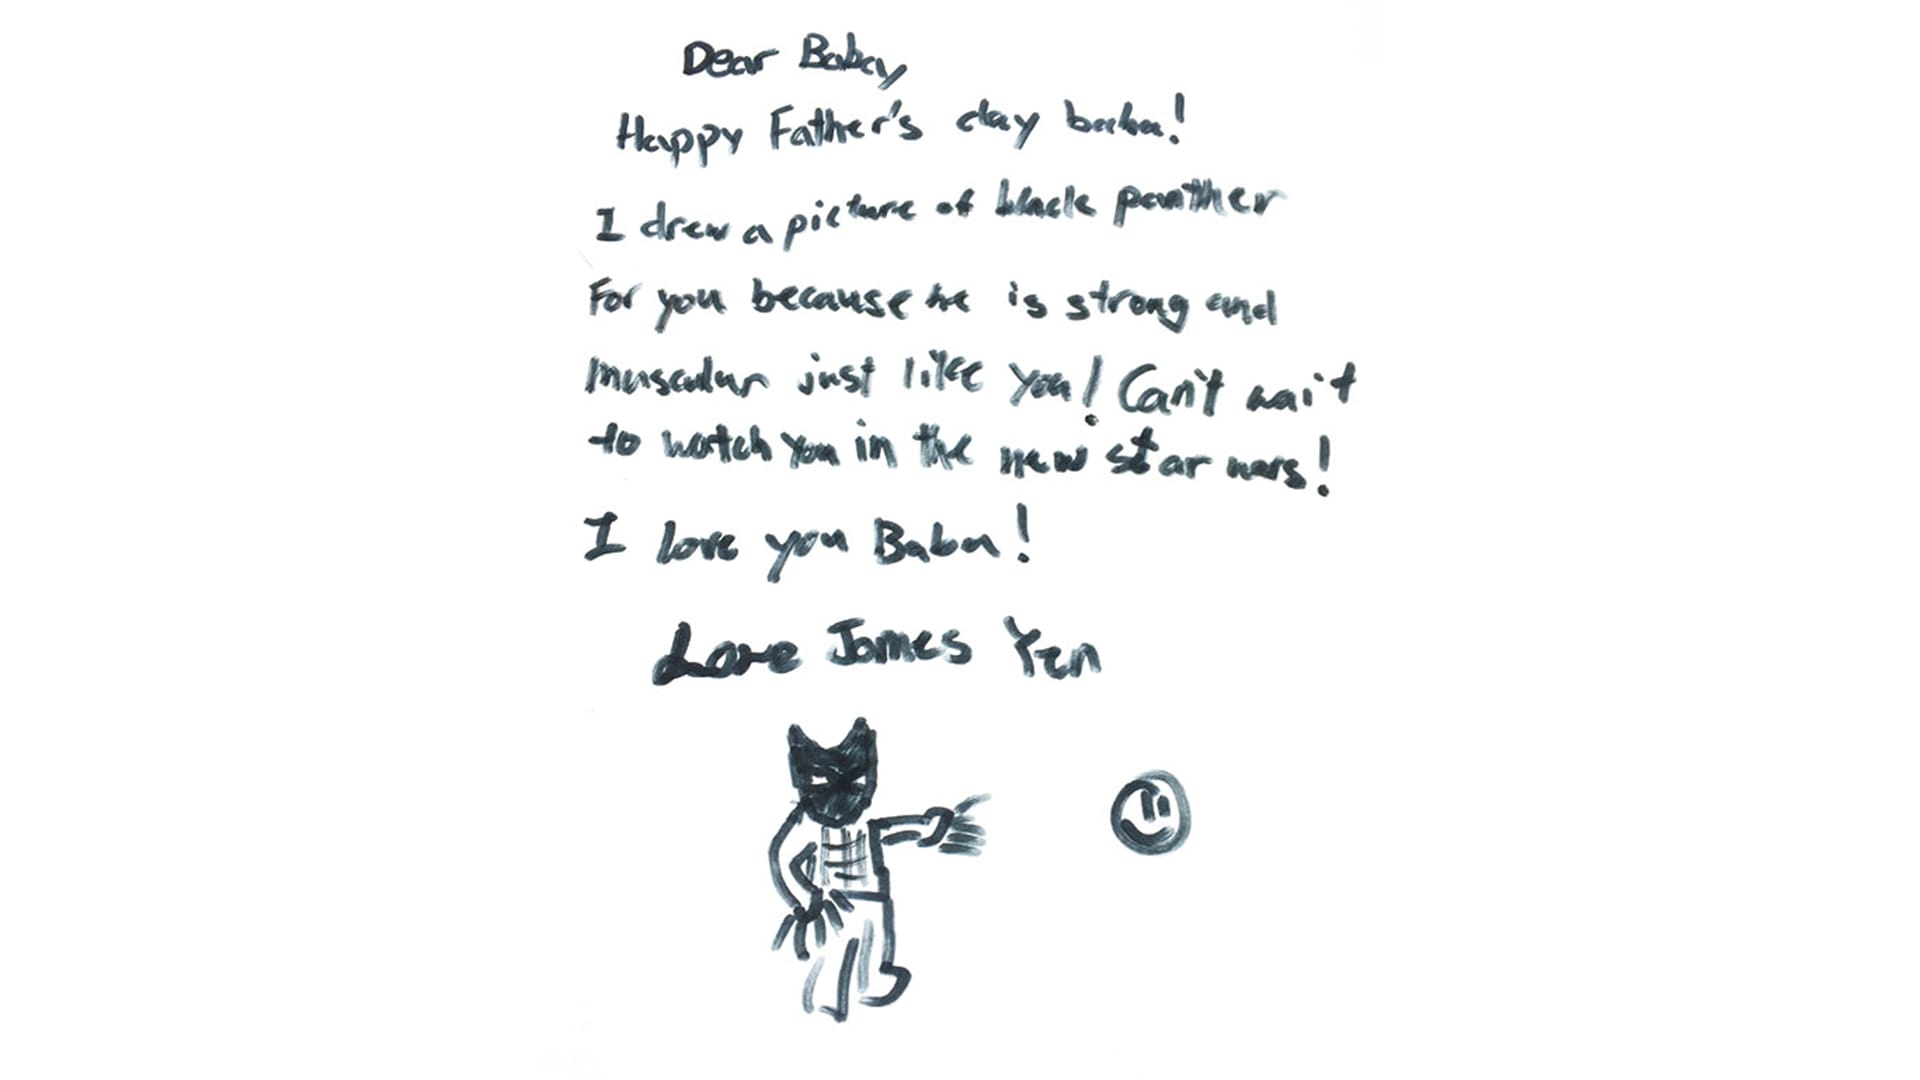 Dear Baba,
Happy Father's day baba!
I drew a picture of black panther
For you because he is strong and
muscular just like you! Can't wait
to watch you in the new star wars!
I love you Baba!
Love James Yen